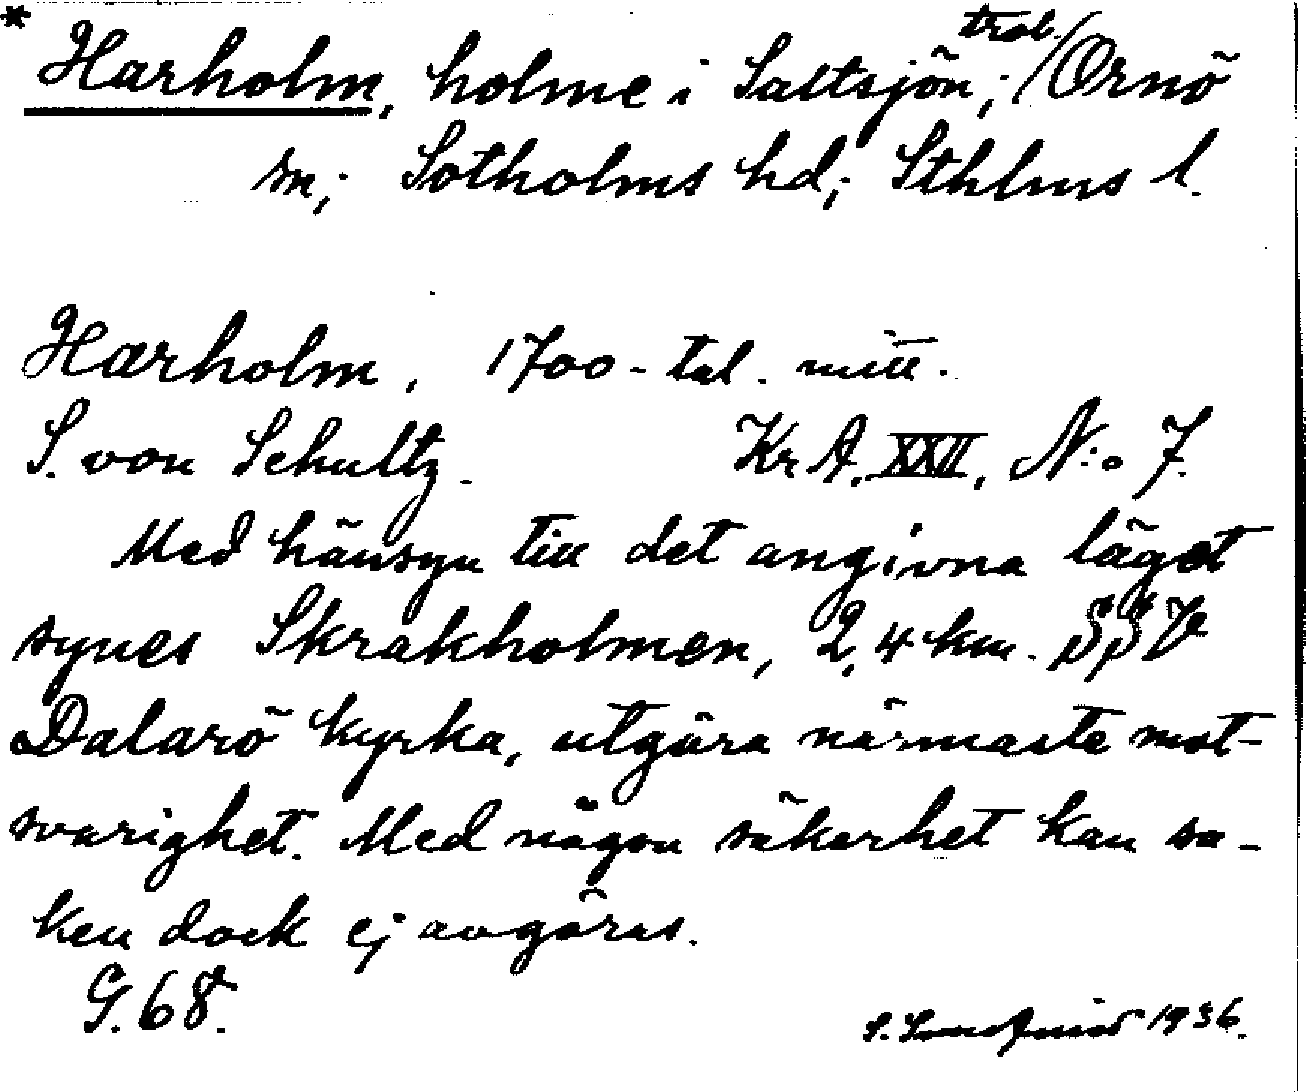 * Harholm, holme i Saltsjön, trol. / Ornö
sn; Sotholms hd; Sthlms l.
Harholm, 1700-tal. mitt.
S. von Schultz. Kr A. XXII, N:o 7.
Med hänsyn till det angivna läget
synes Skrakholmen, 2,4 km. SSV
Dalarö kyrka, utgöra närmaste mot-
svarighet. Med någon säkerhet kan sa-
ken dock ej avgöras.
G. 68. S. 1936.